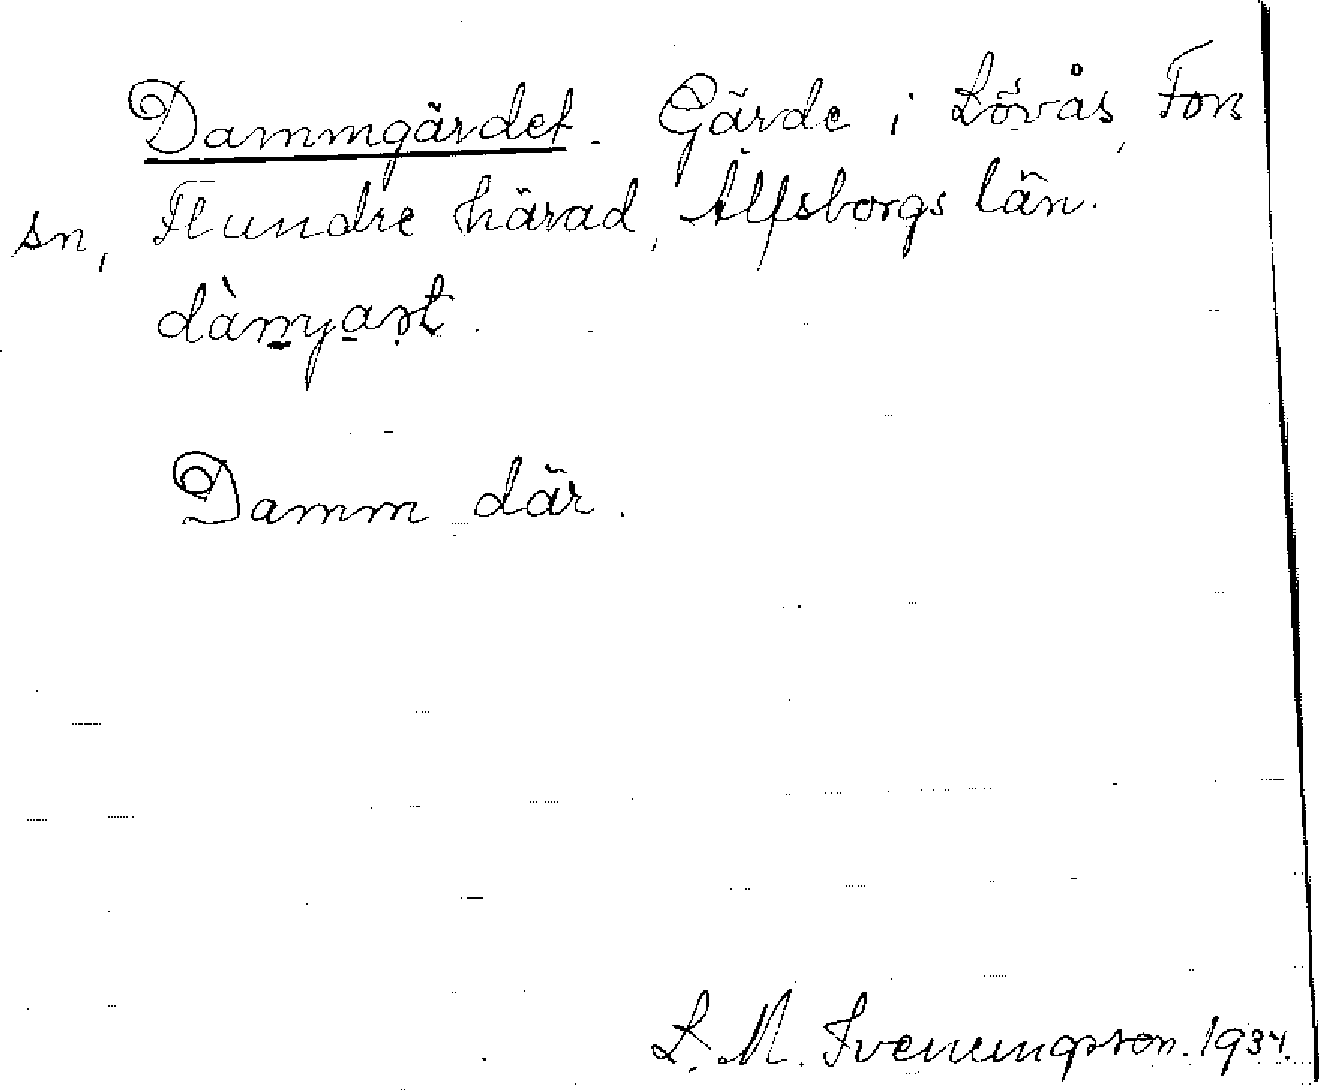 Dammgärdet. Gärde i Lövås, Fors
sn, Flundre härad, Älfsborgs län.
dàmyaṛt.
Damm där.
L. M. Svenungsson. 1934.